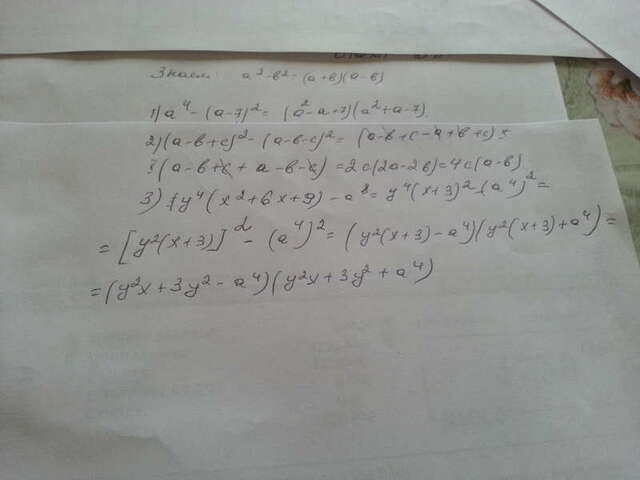 Знаем: a²-в²-(a+в)(a-в)
1) a⁴-(a-7)²=(a²-a+7)(a²+a-7).
2) (a-в+c)²-(a-в-c)²=(a-в+c-a+в+c)·
·(a-в+c+a-в-c)=2c(2a-2в)=4c(a-в).
3) y⁴(x²+6x+9)-a⁸=y⁴(x+3)²-(a⁴)²=
=[y²(x+3)]²-(a⁴)²=(y²(x+3)-a⁴)(y²(x+3)+a⁴)=
=(y²x+3y²-a⁴)(y²x+3y²+a⁴)